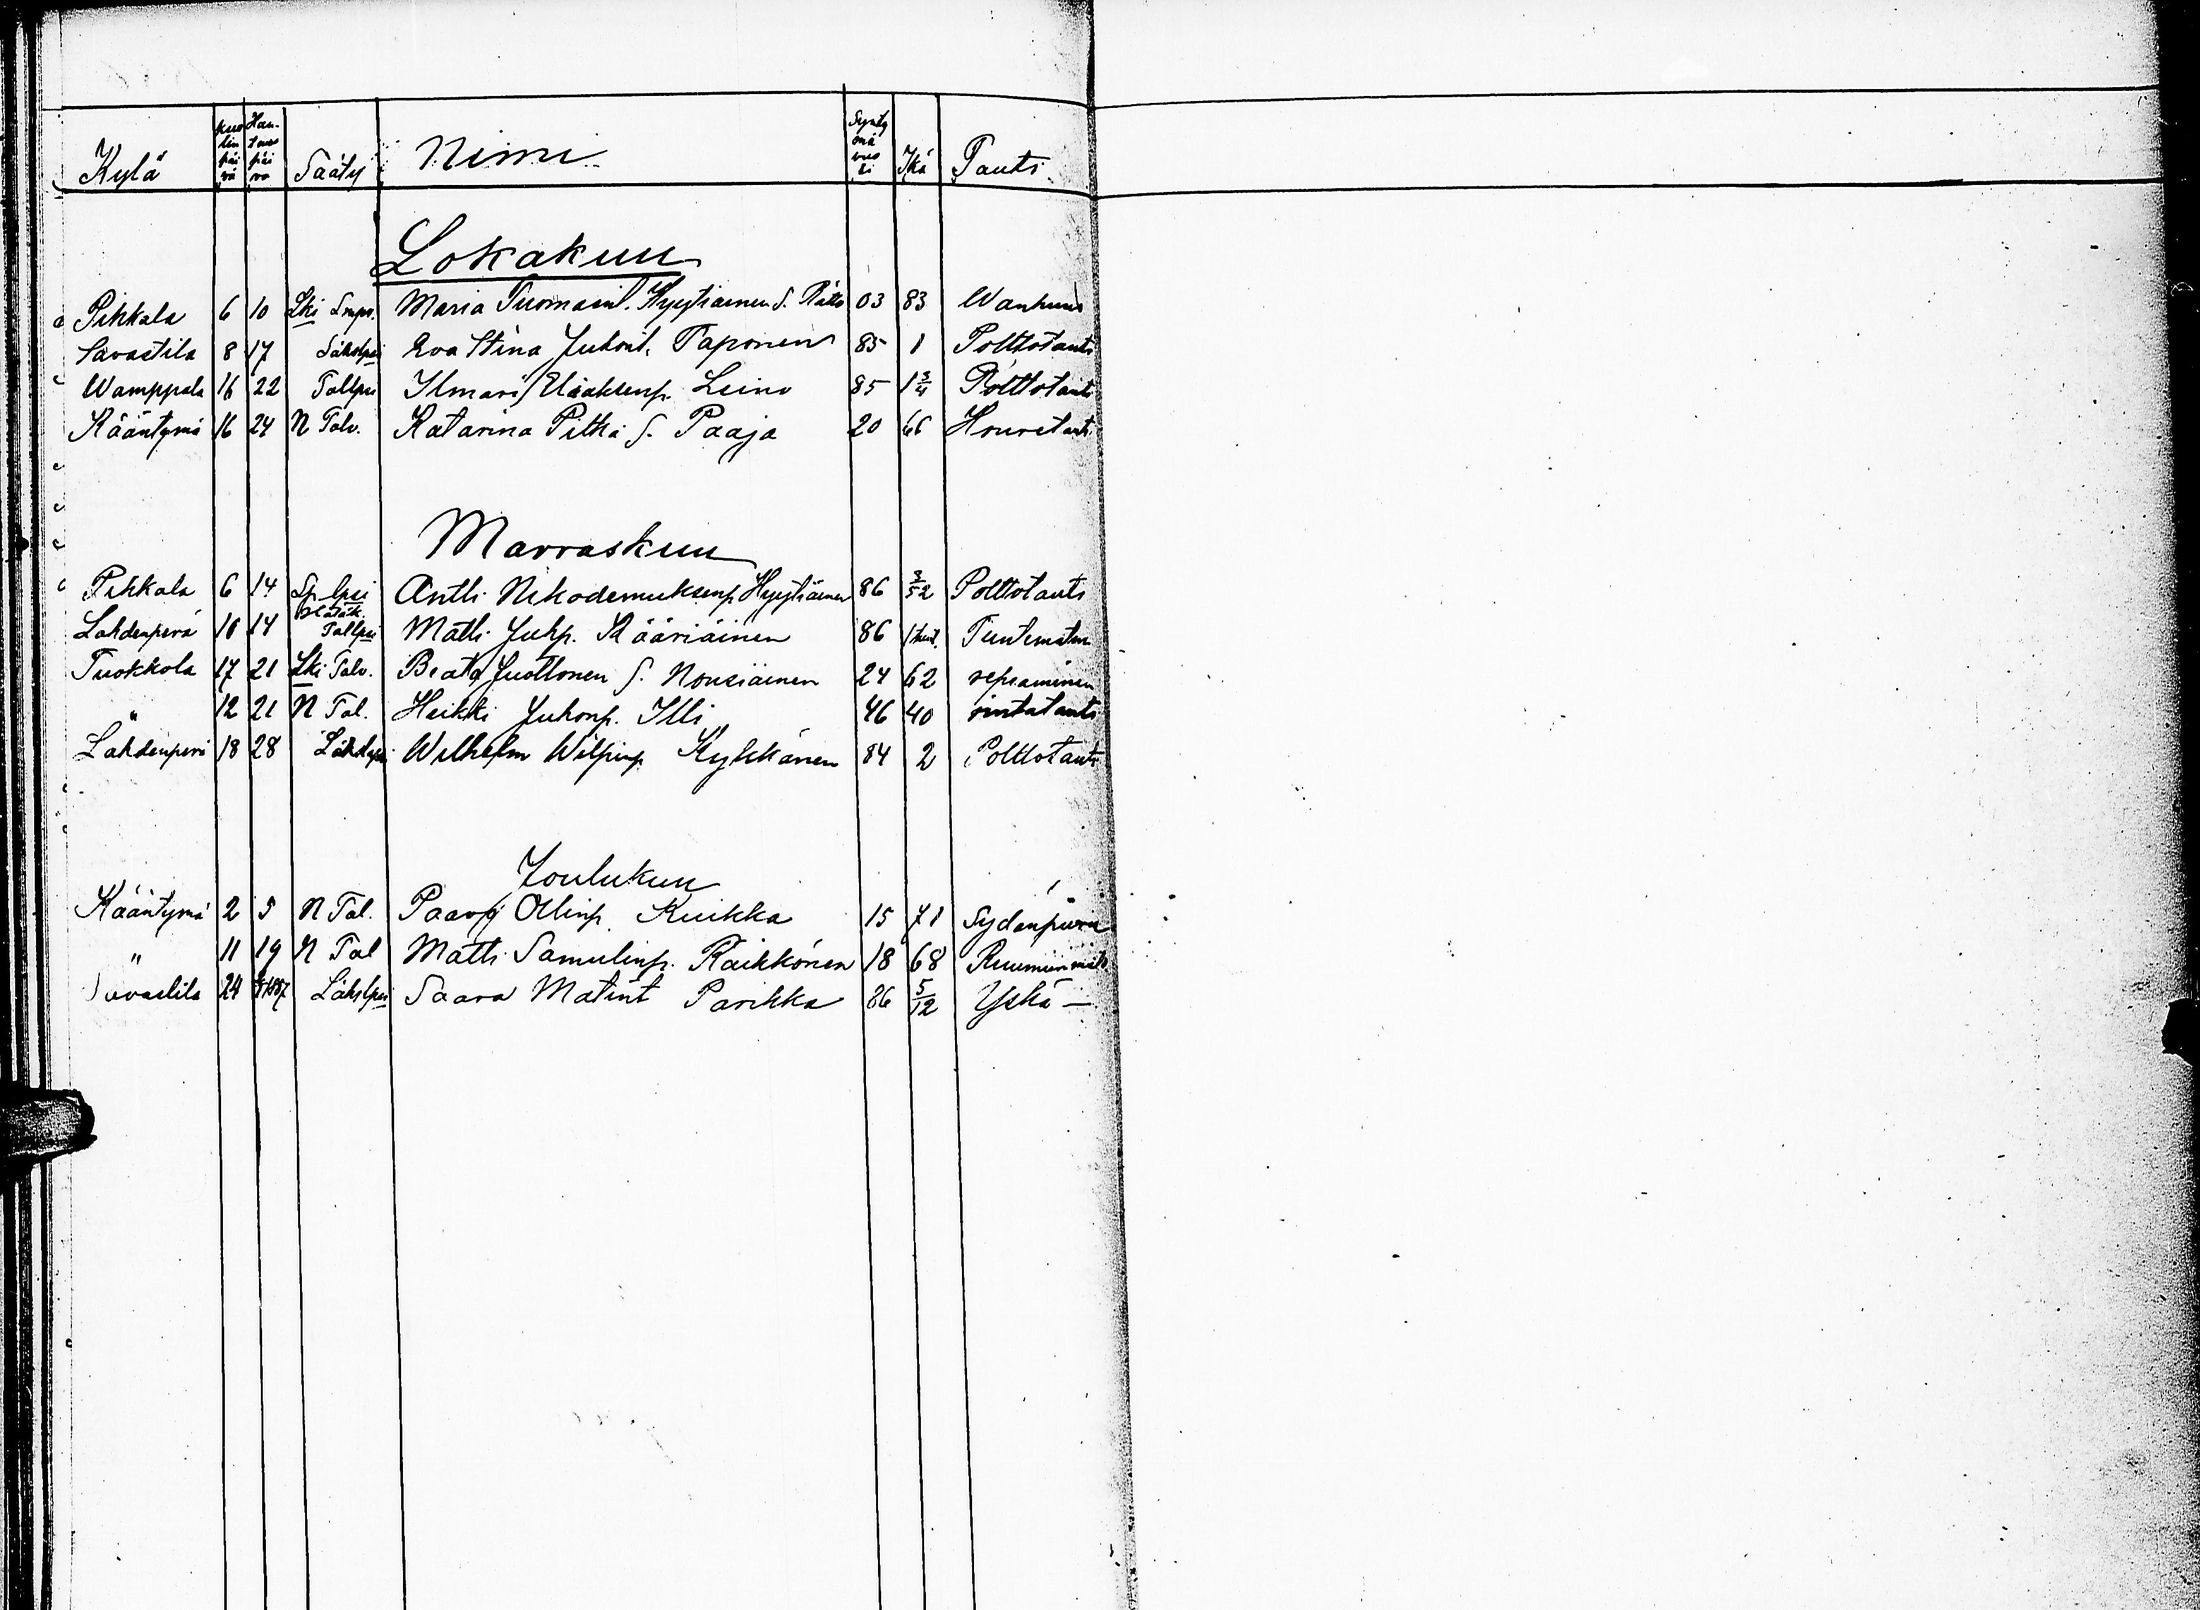 Kylä Kuolinpäivä Hautauspäivä Sääty Nimi Syntymävuosi Ikä Tauti
Lokakuu
Pihkala 6 10 Lki Lmps. Maria Tuomaant. Hyytiäinen S. 03 83 Wanhuus
Savastila 8 17 Eva Stina Juhont. Taponen 85 1 Polttotauti
Wamppala 16 22 Tallpsi Ilmari Eliaksenp. Leino 85 1 3/4 Polttotauti
Kääntymä 16 24 N Talv. Katarina Pitkä S. Paaja 20 66 Houretauti
Marraskuu
Pihkala 6 14 Sp. lpsi Antti Nikodemuksenp Hyytiäinen 86 3/52 Polttotauti
Lahdenperä 10 14 Tallpsi Matti Juhp. Kääriäinen 86 Tuntematon
Tuokkola 17 21 Lki Talv. Beata Juottonen S. Nousiainen 24 62 repiäminen
" 12 21 N Tal. Heikki Juhonp. Illi 46 40 rintatauti
Lahdenperä 18 28 Wilhelm Wilpinp Kykkänen 84 2 Polttotauti
Joulukuu
Kääntymä 2 5 N Tal. Paavo Ollinp. Kuikka 15 71 Sydänpiiru
" 11 19 N Tal Matti Samulinp. Räikkönen 18 68
Savastila 24 Läkslpsi Saara Matint Parikka 86 5/12 Yskä —